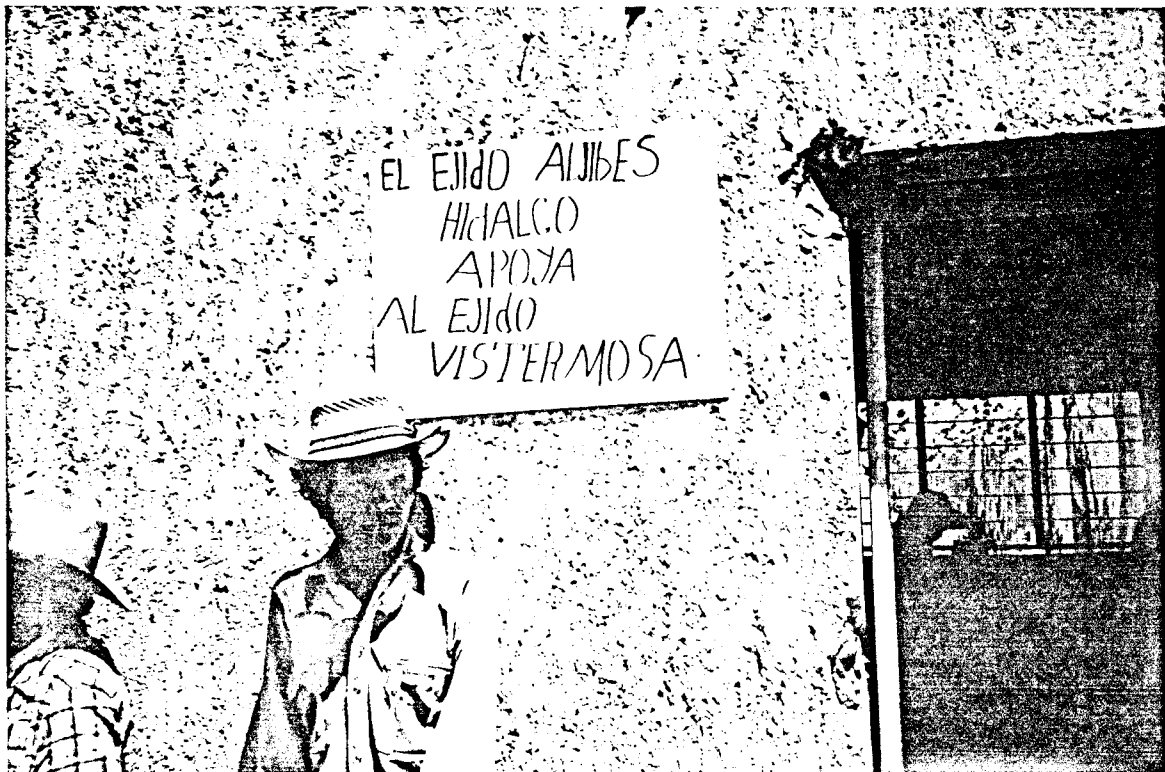 EL EJIdO AlJIbES
HIdALGO
APOYA
AL EJIdO
VISTERMOSA